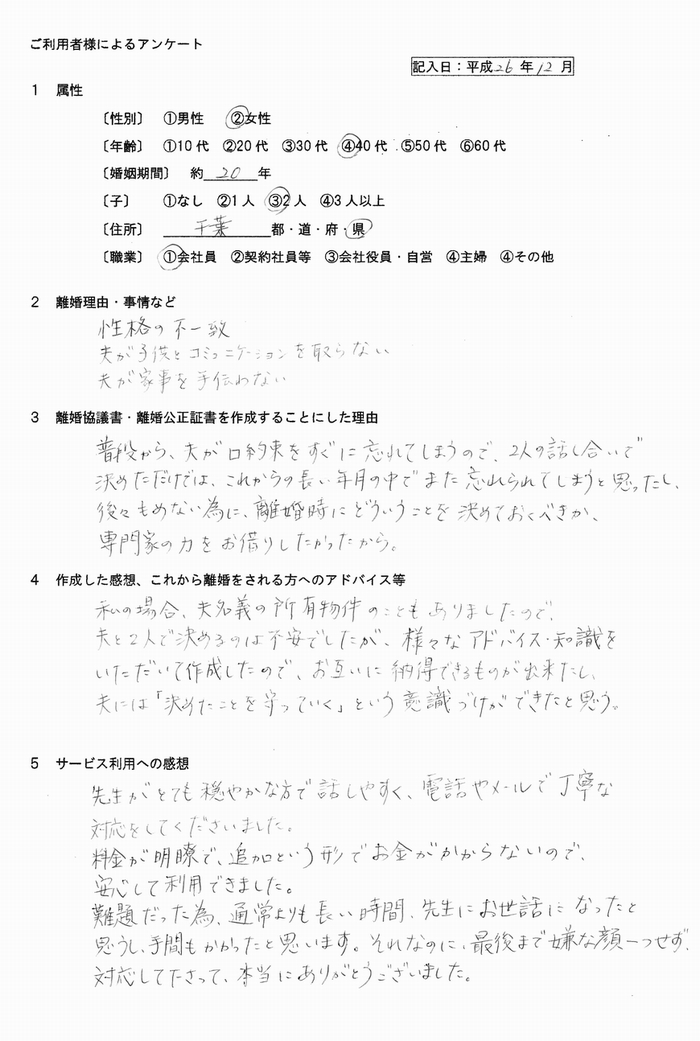 ご利用者様によるアンケート
記入日：平成26年12月
1 属性
〔性別〕 ①男性 ②女性
〔年齢〕 ①10代 ②20代 ③30代 ④40代 ⑤50代 ⑥60代
〔婚姻期間〕 約 20 年
〔子〕 ①なし ②1人 ③2人 ④3人以上
〔住所〕 千葉 都・道・府・県
〔職業〕 ①会社員 ②契約社員等 ③会社役員・自営 ④主婦 ④その他
2 離婚理由・事情など
性格の不一致
夫が子供とコミュニケーションを取らない
夫が家事を手伝わない
3 離婚協議書・離婚公正証書を作成することにした理由
普段から、夫が口約束をすぐに忘れてしまうので、2人の話し合いで
決めただけでは、これからの長い年月の中でまた忘れられてしまうと思ったし、
後々もめない為に、離婚時にどういうことを決めておくべきか、
専門家の力をお借りしたかったから。
4 作成した感想、これから離婚をされる方へのアドバイス等
私の場合、夫名義の所有物件のこともありましたので、
夫と2人で決めるのは不安でしたが、様々なアドバイス・知識を
いただいて作成したので、お互いに納得できるものが出来たし、
夫には「決めたことを守っていく」という意識づけができたと思う。
5 サービス利用への感想
先生がとても穏やかな方で話しやすく、電話やメールで丁寧な
対応をしてくださいました。
料金が明瞭で、追加という形でお金がかからないので、
安心して利用できました。
難題だった為、通常よりも長い時間、先生にお世話になったと
思うし、手間もかかったと思います。それなのに、最後まで嫌な顔一つせず、
対応して下さって、本当にありがとうございました。